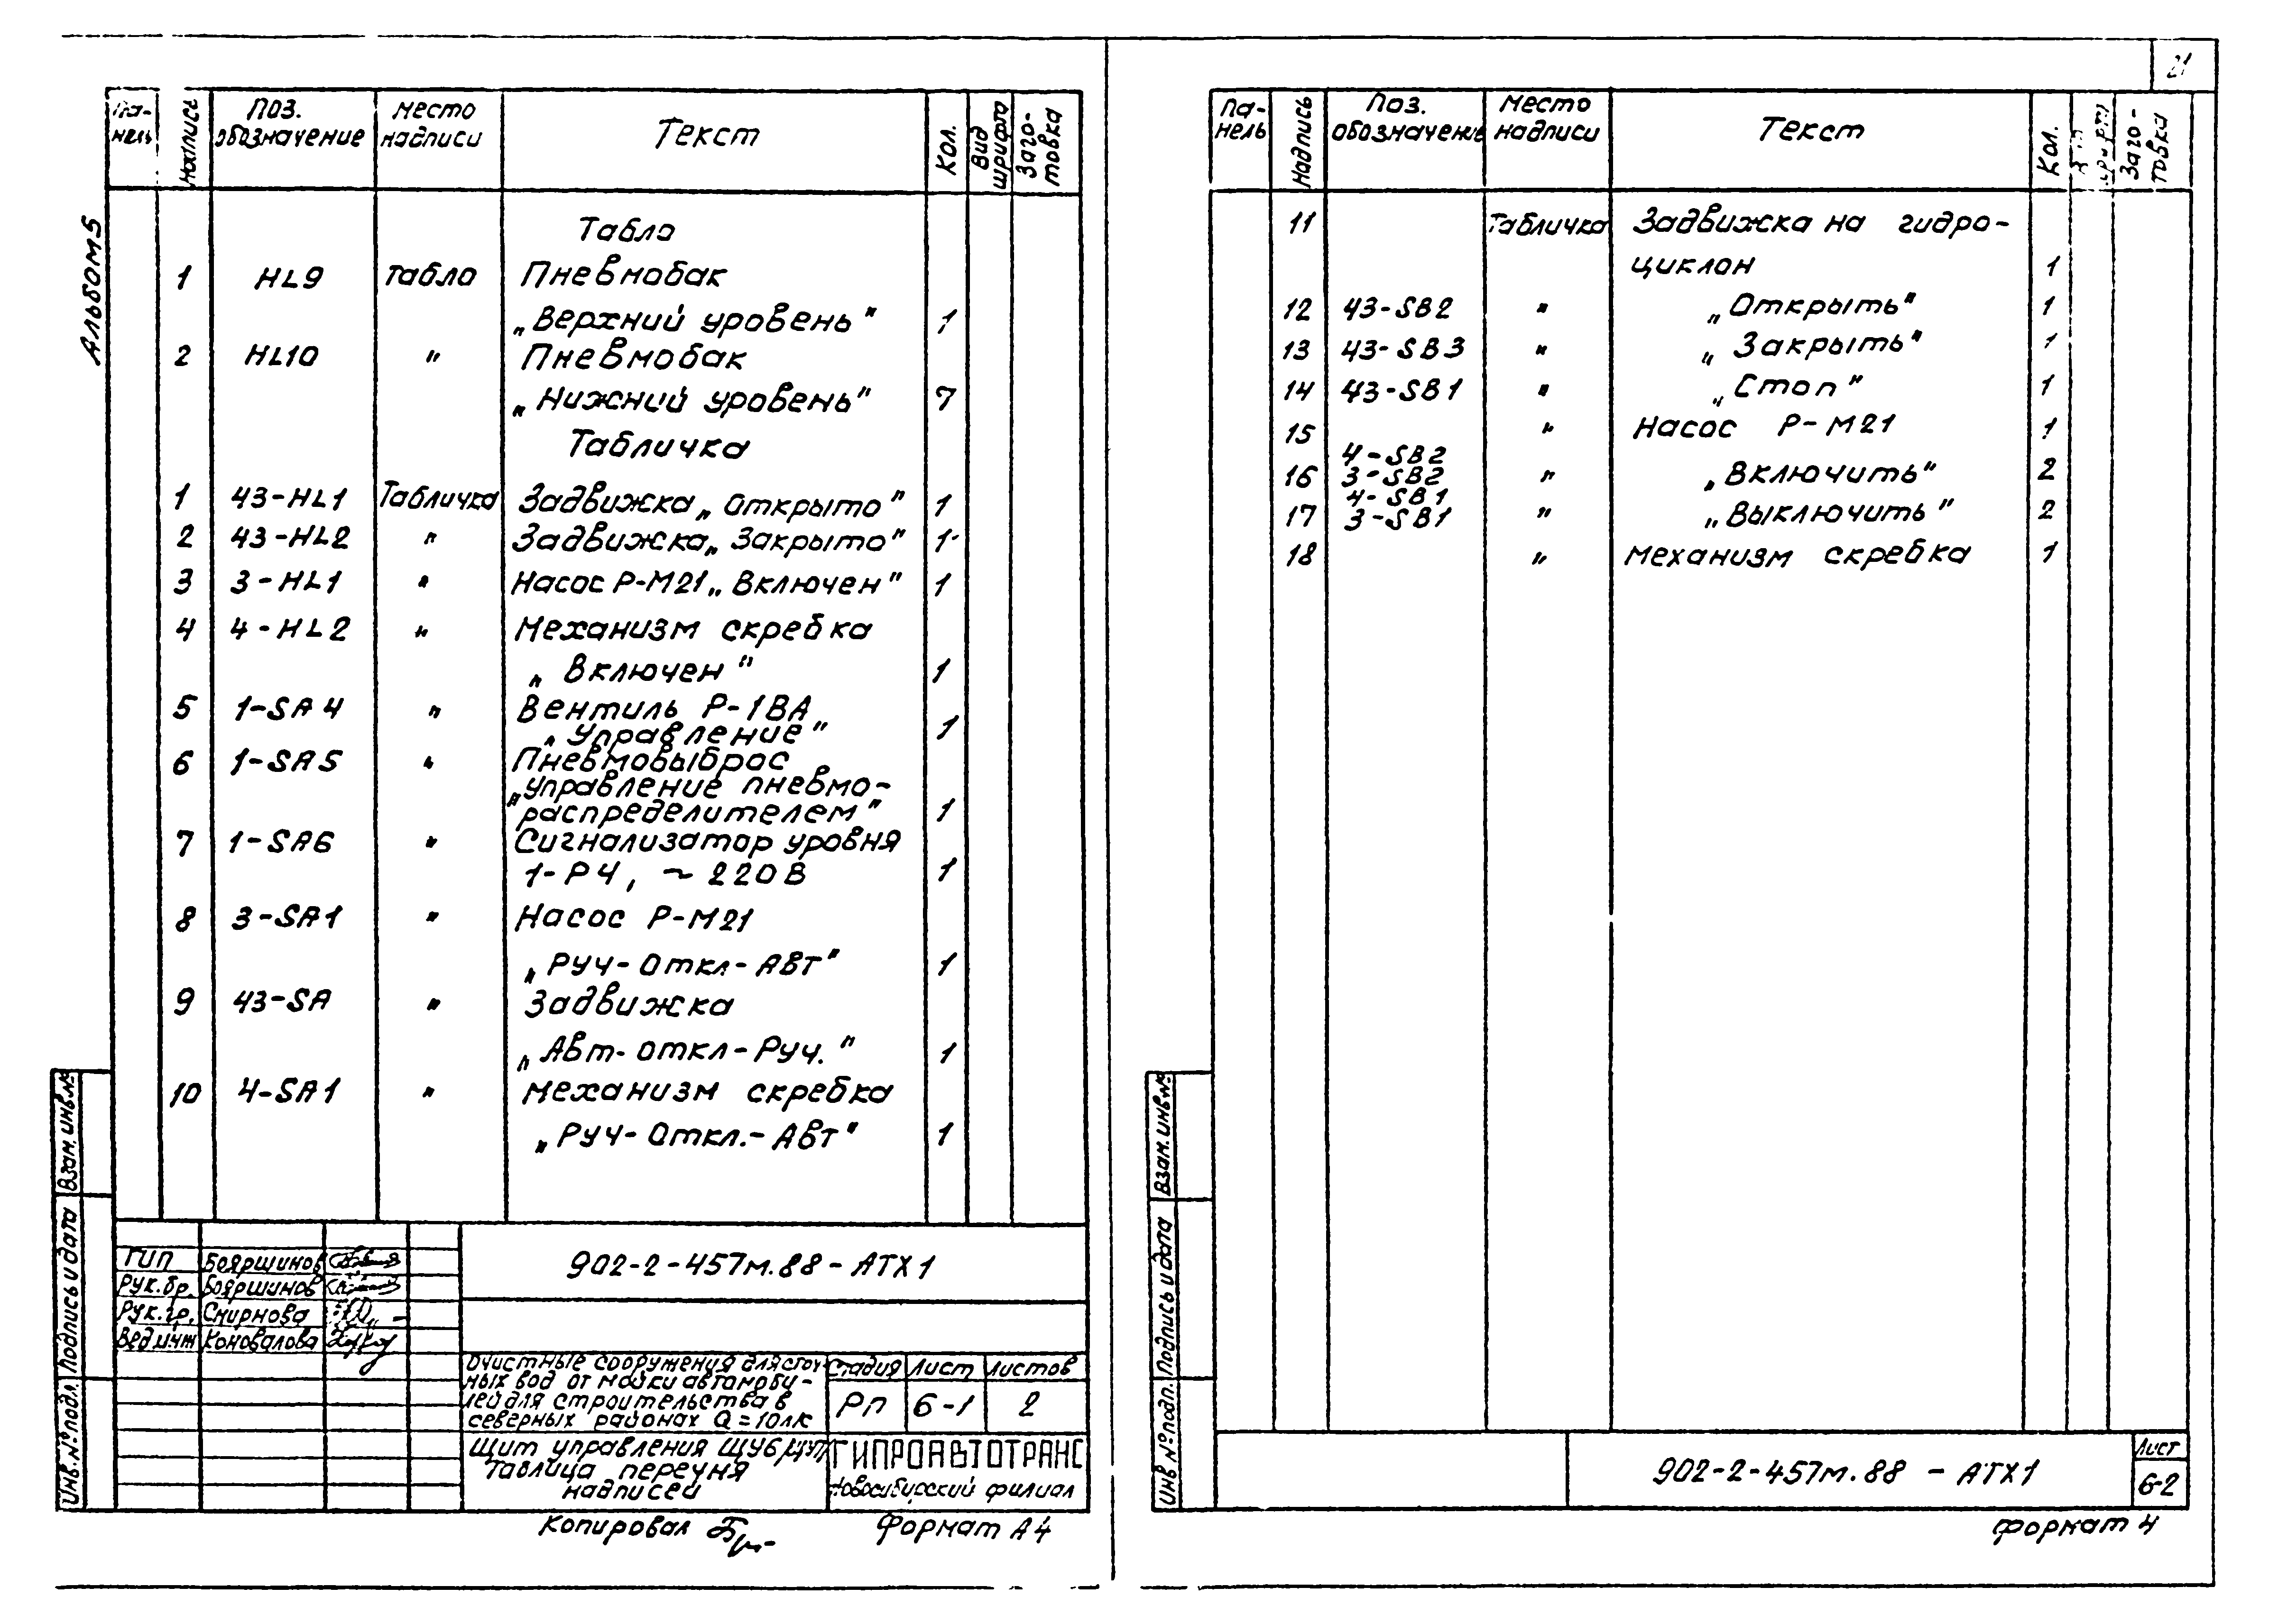 21
Альбом 5
Па-нель Надпись Поз. обозначение Место надписи Текст Кол. Вид шрифта Заго-товка
Табло
1 HL9 Табло Пневмобак
„Верхний уровень" 1
2 HL10 " Пневмобак
„Нижний уровень" 7
Табличка
1 43-HL1 Табличка Задвижка „Открыто" 1
2 43-HL2 " Задвижка „Закрыто" 1
3 3-HL1 " Насос Р-М21 „Включен" 1
4 4-HL2 " Механизм скребка
„Включен" 1
5 1-SA4 " Вентиль Р-1ВА
„Управление" 1
6 1-SA5 " Пневмовыброс
„Управление пневмо-
распределителем" 1
7 1-SA6 " Сигнализатор уровня
1-РЧ, ~220В 1
8 3-SA1 " Насос Р-М21
„Руч-Откл-Авт" 1
9 43-SA " Задвижка
„Авт-откл-Руч." 1
10 4-SA1 " Механизм скребка
„Руч-Откл.-Авт" 1
Взам. инв. №
Подпись и дата
Инв. № подл.
ГИП Бояршинов
Рук. бр. Бояршинов
Рук. гр. Смирнова
Вед. инж Коновалова
902-2-457м.88 - АТХ1
Очистные сооружения для сточ-
ных вод от мойки автомоби-
лей для строительства в
северных районах Q=10л/с
Стадия Лист Листов
РП 6-1 2
Щит управления ЩУ6
Таблица перечня
надписей
ГИПРОАВТОТРАНС
Новосибирский филиал
Копировал
Формат А4
Па-нель Надпись Поз. обозначение Место надписи Текст Кол. Заго-товка
11 Табличка Задвижка на гидро-
циклон 1
12 43-SB2 " „Открыть" 1
13 43-SB3 " „Закрыть" 1
14 43-SB1 " „Стоп" 1
15 " Насос Р-М21 1
4-SB2
16 3-SB2 " „Включить" 2
4-SB1
17 3-SB1 " „Выключить" 2
18 " Механизм скребка 1
Взам. инв. №
Подпись и дата
Инв № подл.
902-2-457м.88 - АТХ1
Лист
6-2
Формат 4